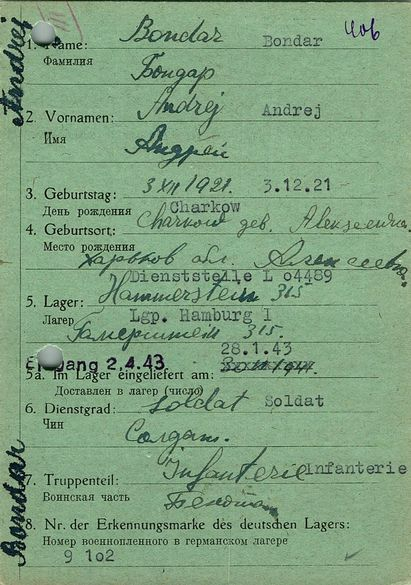 Andrej
406
1. Name: Bondar Bondar
Фамилия Бондар
2. Vornamen: Andrej Andrej
Имя Андрей
3. Geburtstag: 3 XII 1921. 3.12.21
День рождения Charkow
4. Geburtsort: Charkow
Место рождения
Харьков обл.
Dienststelle L 04489
5. Lager: Hammerstein 315
Лагерь Lgp. Hamburg I
315.
28.1.43
Eingang 2.4.43
5a. Im Lager eingeliefert am:
Доставлен в лагер (число)
6. Dienstgrad: Soldat Soldat
Чин Солдат.
7. Truppenteil: Infanterie Infanterie
Воинская часть
8. Nr. der Erkennungsmarke des deutschen Lagers:
Номер военнопленного в германском лагере
9 102
Bondar